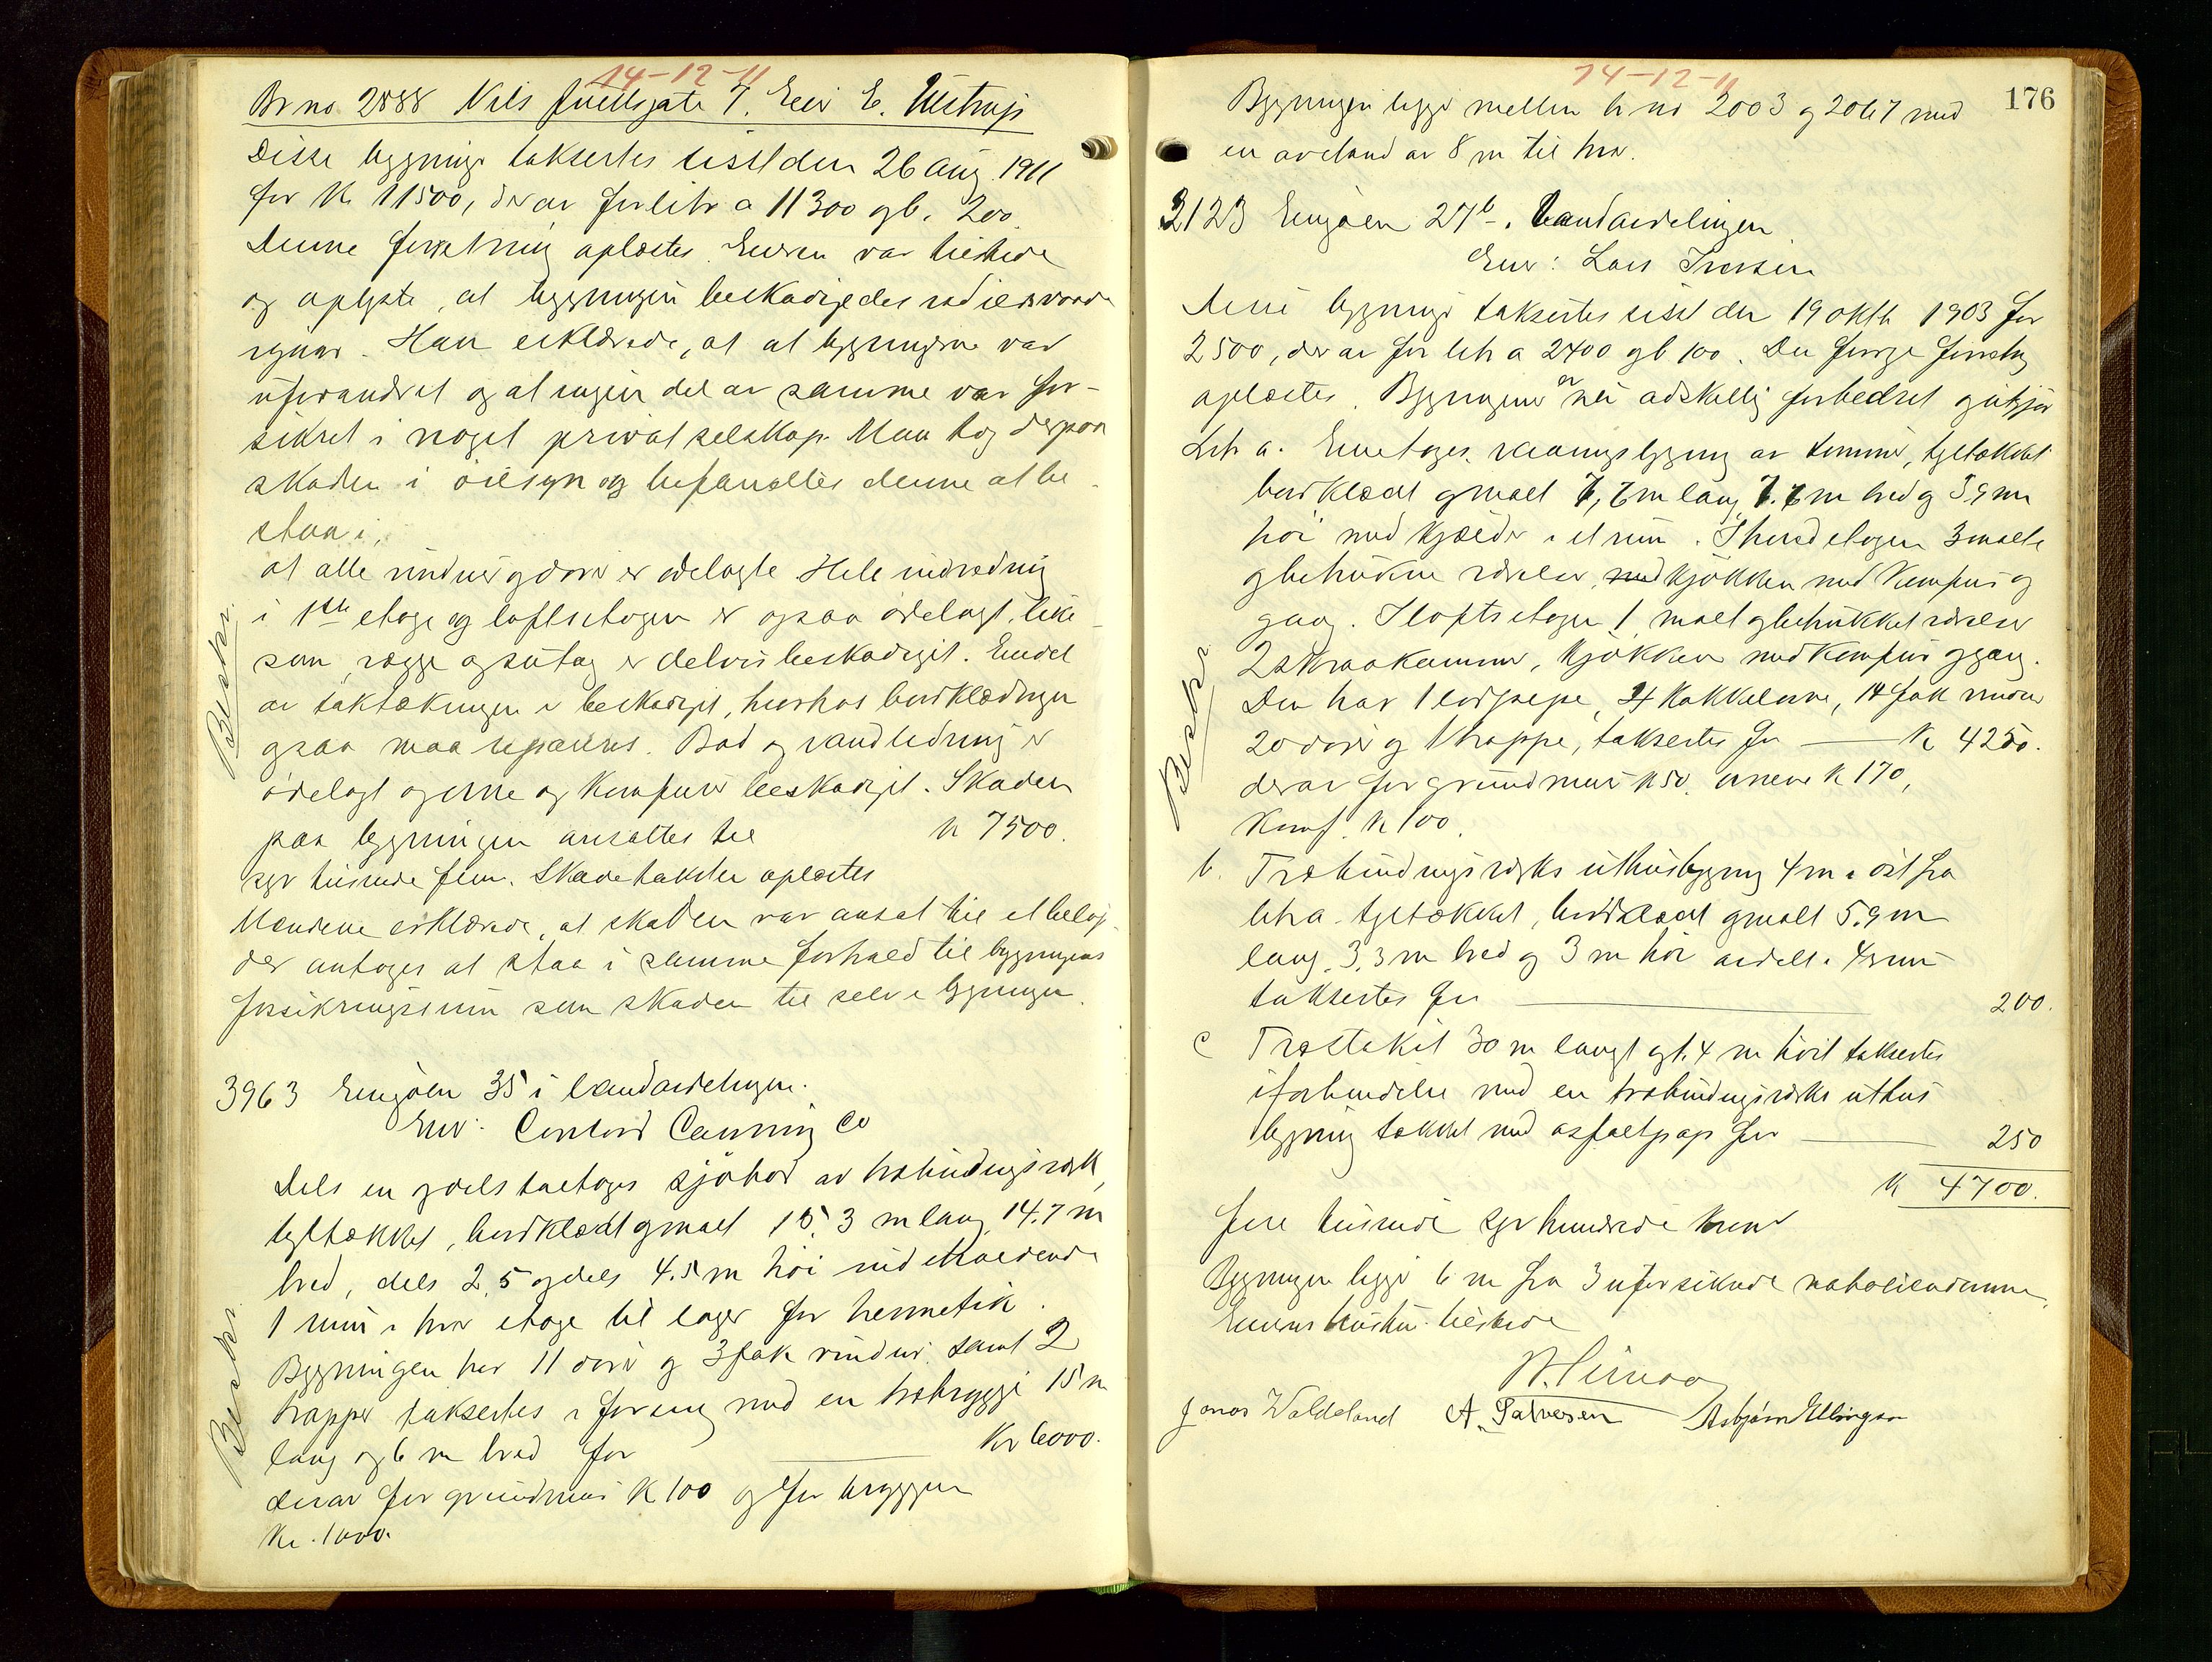 14-12-11
Br no 2888 Nils Juellsgate 7. Eier E. Ulstrup
Disse bygninger taksertes sist den 26 aug. 1911
for Kr 11500, derav for litr a 11300 og b. 200.
Denne forretning oplæstes. Eieren var tilstede
og oplyste, at bygningen beskadigedes ved ildsvaade
igaar. Han erklærede, at at bygningerne var
uforandret og at ingen del av samme var for-
sikret i noget privat selskap. Man tog derpaa
skaden i öiesyn og befandtes denne at be-
staa i,
at alle vinduer og dörer er ödelagte Hele indredning
i 1ste etage og loftsetagen er ogsaa ödelagt, like-
som vægge og sutag er delvis beskadiget. Endel
av taktækningen er beskadiget, hvorhos bordklædningen
ogsaa maa repareres. Bad og vandledning er
ödelagt og ovne og Komfurer beskadiget. Skaden
paa bygningen ansattes til kr 7500.
syv tusinde fem. Skadetaksten oplæstes
Mændene erklærede, at skaden var ansat til et belöp
der antoges at staa i samme forhold til bygningens
forsikringssum som skaden til selve bygningen.
3963 Engöen 35 i landavdelingen.
Eier: Concord Canning Co
Dels en og dels toetages sjöbod av træbindingsverk,
tgltækket, bordklædt og malt 15,3 m lang, 14.7 m
bred, dels 2,5 og dels 4.5 m höi indeholdende
1 rum i hver etage til lager for hermetik.
Bygningen har 11 dörer og 3 fak vinduer samt 2
trapper taksertes i forening med en træbrygge 15 m
lang og 6 m bred for Kr 6000.
derav for grundmur K 100 og for bryggen
Kr. 1000.
Beskr.
Beskr.
14-12-11
176
Bygningen ligger mellem br no 2003 og 2067 med
en avstand av 8 m til hver.
2123 Engöen 27b. Landavdelingen
Eier: Lars Iversen
Disse bygninger taksertes sist den 19 oktb 1903 for
2500, derav for litr a 2400 og b 100. Den forrige forretng
oplæstes. Bygningerne er nu adskillig forbedret og utgjör
Litr a. Enetages vaaningsbygning av tömmer, tgltækket
bordklædt og malt 7,7 m lang 7.7 m bred og 3.9 m
höi med kjælder i et rum. I hovedetagen 3 malte
og betrukne værelser, med kjökken med Komfur og
gang. I loftsetagen 1 malt og betrukket værelse
2 skraakammer, kjökken med komfur og gang.
Den har 1 lodpipe, 4 Kakkelovne, 14 fak vinduer
20 dörer og 1 trappe, taksertes for K 4250.
derav for grundmur K 50. ovnene K 170,
Komf. K 100.
b. Træbindingsverks uthusbygning 4 m i öst fra
litr a tgltækket, bordklædt og malt 5.9 m
lang, 3,3 m bred og 3 m höi avdelt i 4 rum
taksertes for 200.
c Træstakit 30 m langt og 1.4 m höit taksertes
i forbindelse med en træbindingsverks uthus
bygning tækket med asfaltpap for 250
K 4700.
fire tusinde syv hundrede kroner
Bygningen ligger 6 m fra 3 uforsikrede naboeiendomme.
Eierens hustru tilstede
Jonas Waldeland A. Salvesen Asbjörn Ellingsen
Beskr.